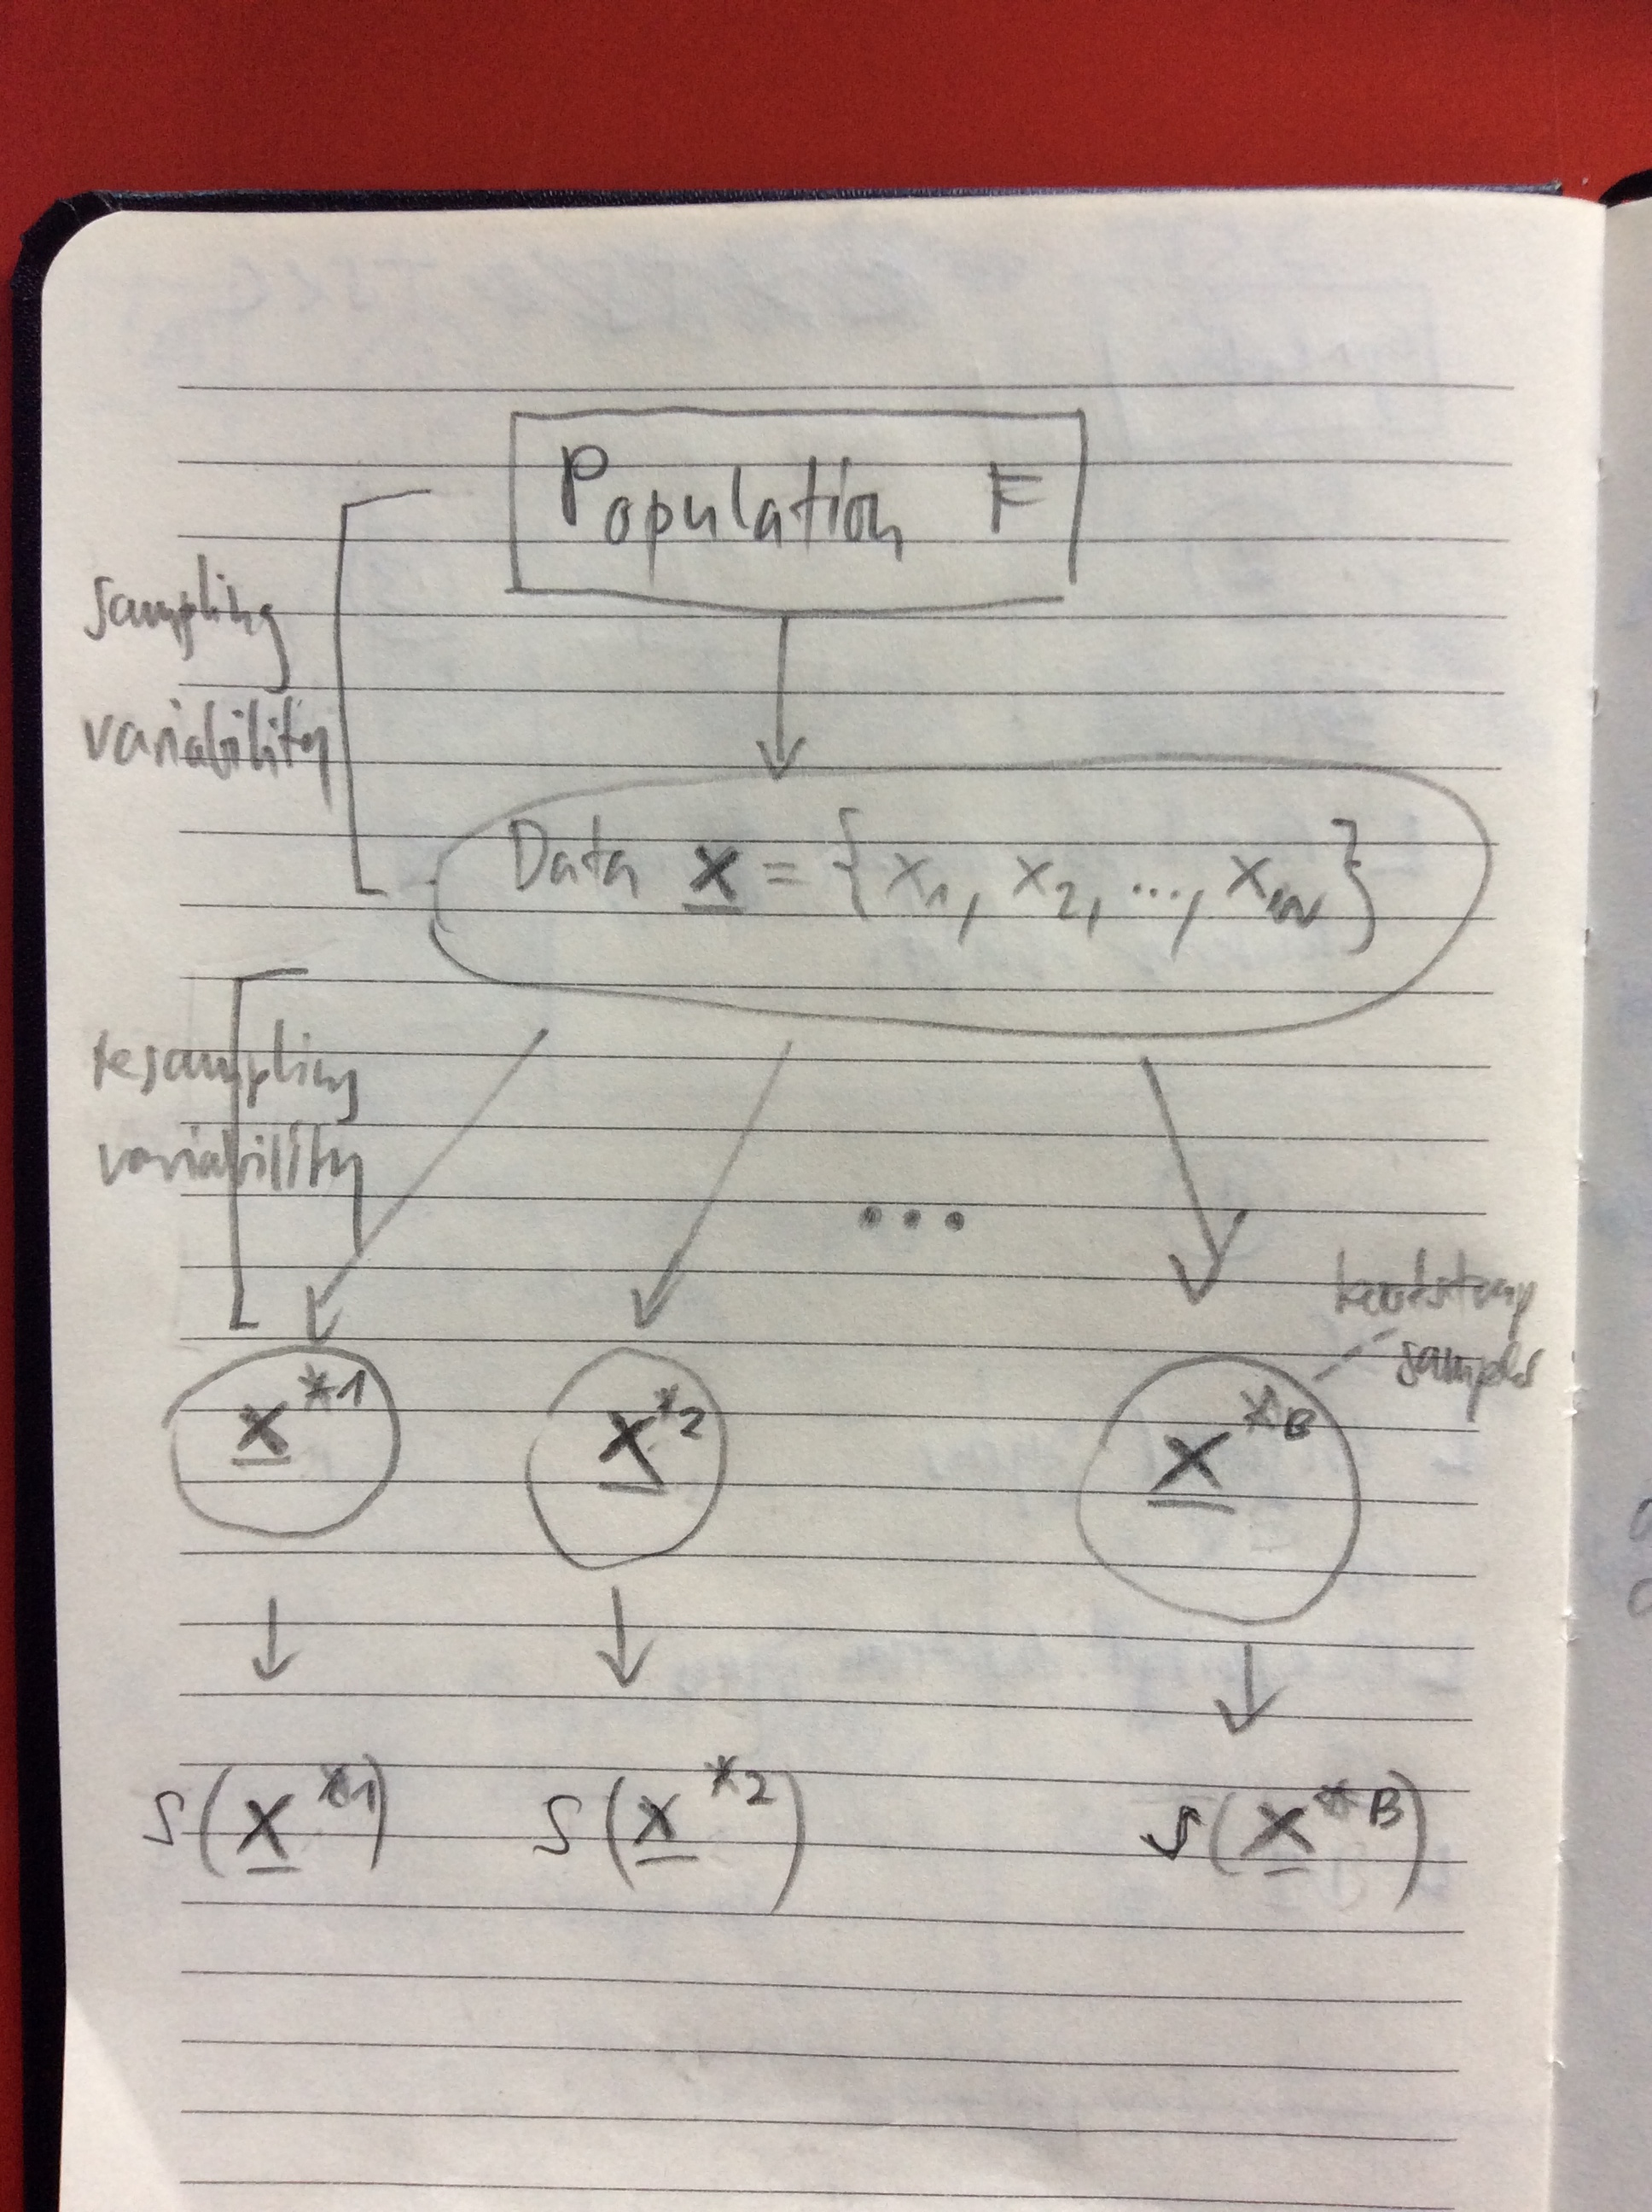 Population F
sampling
variability
Data x = {x1, x2, ..., xN}
resampling
variability
...
bootstrap
samples
x*1 x*2 x*B
s(x*1) s(x*2) s(x*B)